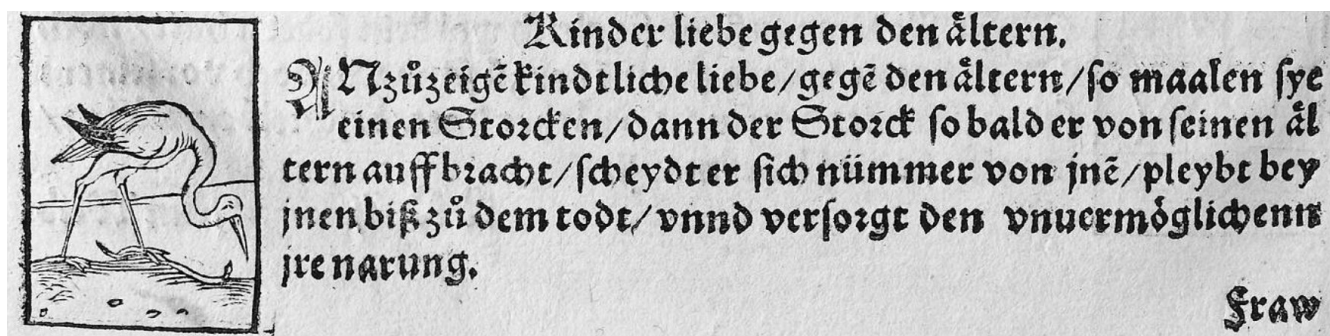 Kinder liebe gegen den åltern.
ANzůzeigẽ kindtliche liebe/gegẽ den åltern/so maalen sye
einen Storcken/dann der Storck so bald er von seinen ål
tern auffbracht/scheydt er sich nümmer von jnẽ/pleybt bey
jnen biß zů dem todt/vnnd versorgt den vnuermöglichenn
jre narung.
Fraw